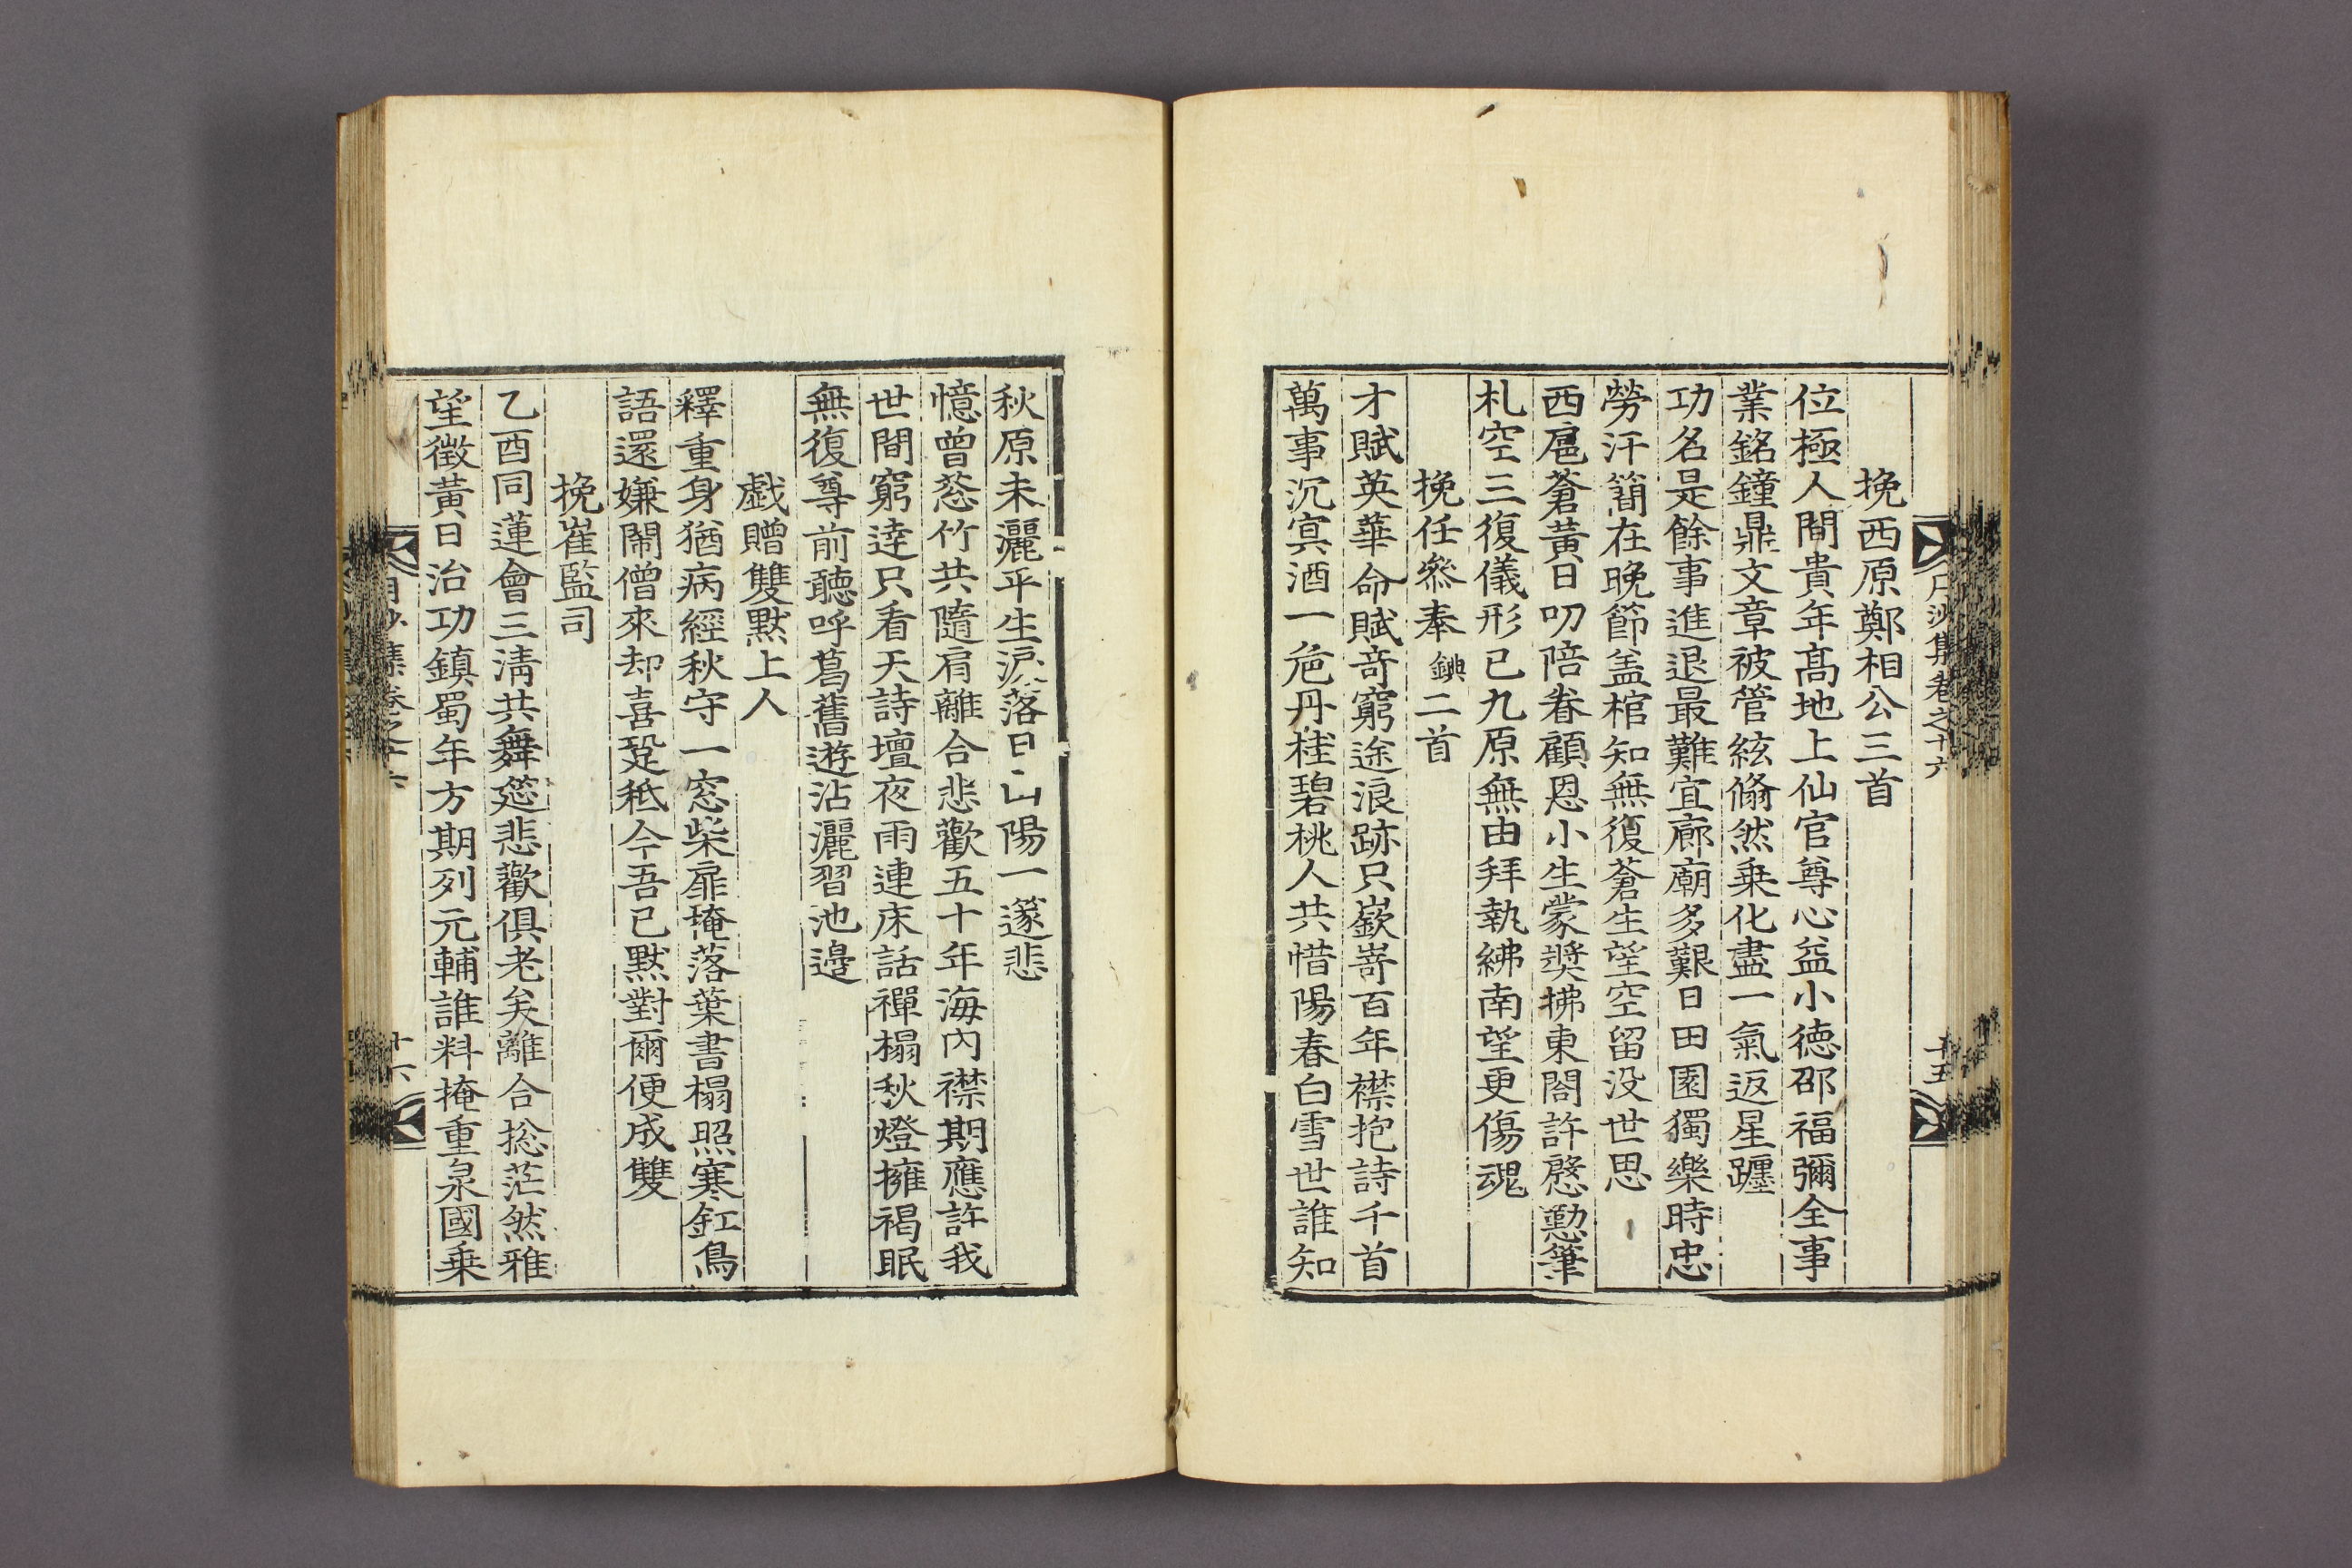 月沙集卷之十六
十五
挽西原鄭相公三首
位極人間貴年高地上仙官尊心益小德邵福彌全事
業銘鐘鼎文章被管絃翛然乘化盡一氣返星躔
功名是餘事進退最難宜廊廟多艱日田園獨樂時忠
勞汗簡在晩節盖棺知無復蒼生望空留没世思
西扈蒼黃日叨陪眷顧恩小生蒙奬拂東閤許慇懃筆
札空三復儀形已九原無由拜執紼南望更傷魂
挽任叅奉鉠二首
才賦英華命賦竒窮途浪跡只嶔嵜百年襟抱詩千首
萬事沉冥酒一巵丹桂碧桃人共惜陽春白雪世誰知
秋原未灑平生淚落日山陽一篴悲
憶曾葱竹共隨肩離合悲歡五十年海內襟期應許我
世間窮達只看天詩壇夜雨連床話禪榻秋燈擁褐眠
無復尊前聽呼葛舊遊沾灑習池邉
戱贈雙默上人
釋重身猶病經秋守一窓柴扉掩落葉書榻照寒釭鳥
語還嫌鬧僧來却喜跫秪今吾已默對爾便成雙
挽崔監司
乙酉同蓮會三淸共舞筵悲歡俱老矣離合捴茫然雅
望徵黃日治功鎭蜀年方期列元輔誰料掩重泉國乗
月沙集卷之十六
十六